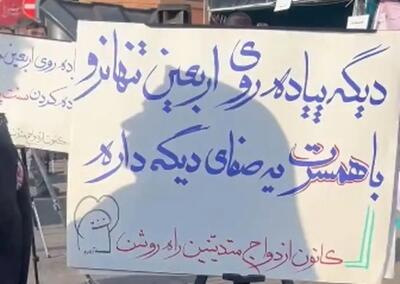 دیگه پیاده روی اربعین تنها نرو
با همسرت یه صفای دیگه داره
کانون ازدواج متدینین راه روشن
ده روی اربعین
ده کردن سنت
کانون ازدواج متد